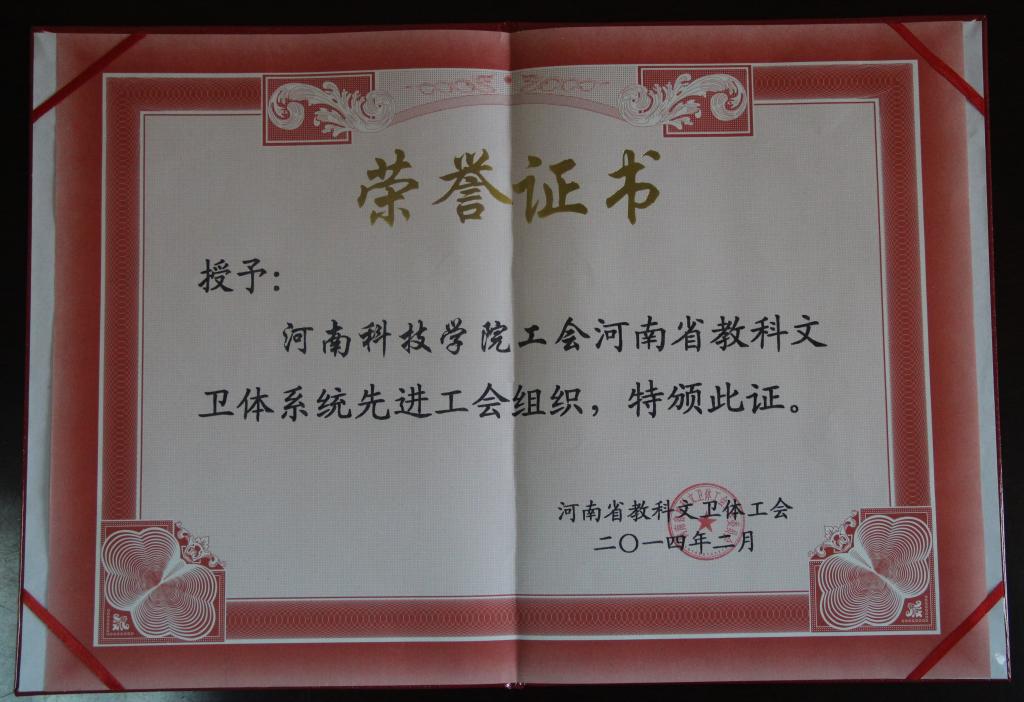 荣誉证书
授予：
河南科技学院工会河南省教科文
卫体系统先进工会组织，特颁此证。
河南省教科文卫体工会
二〇一四年二月